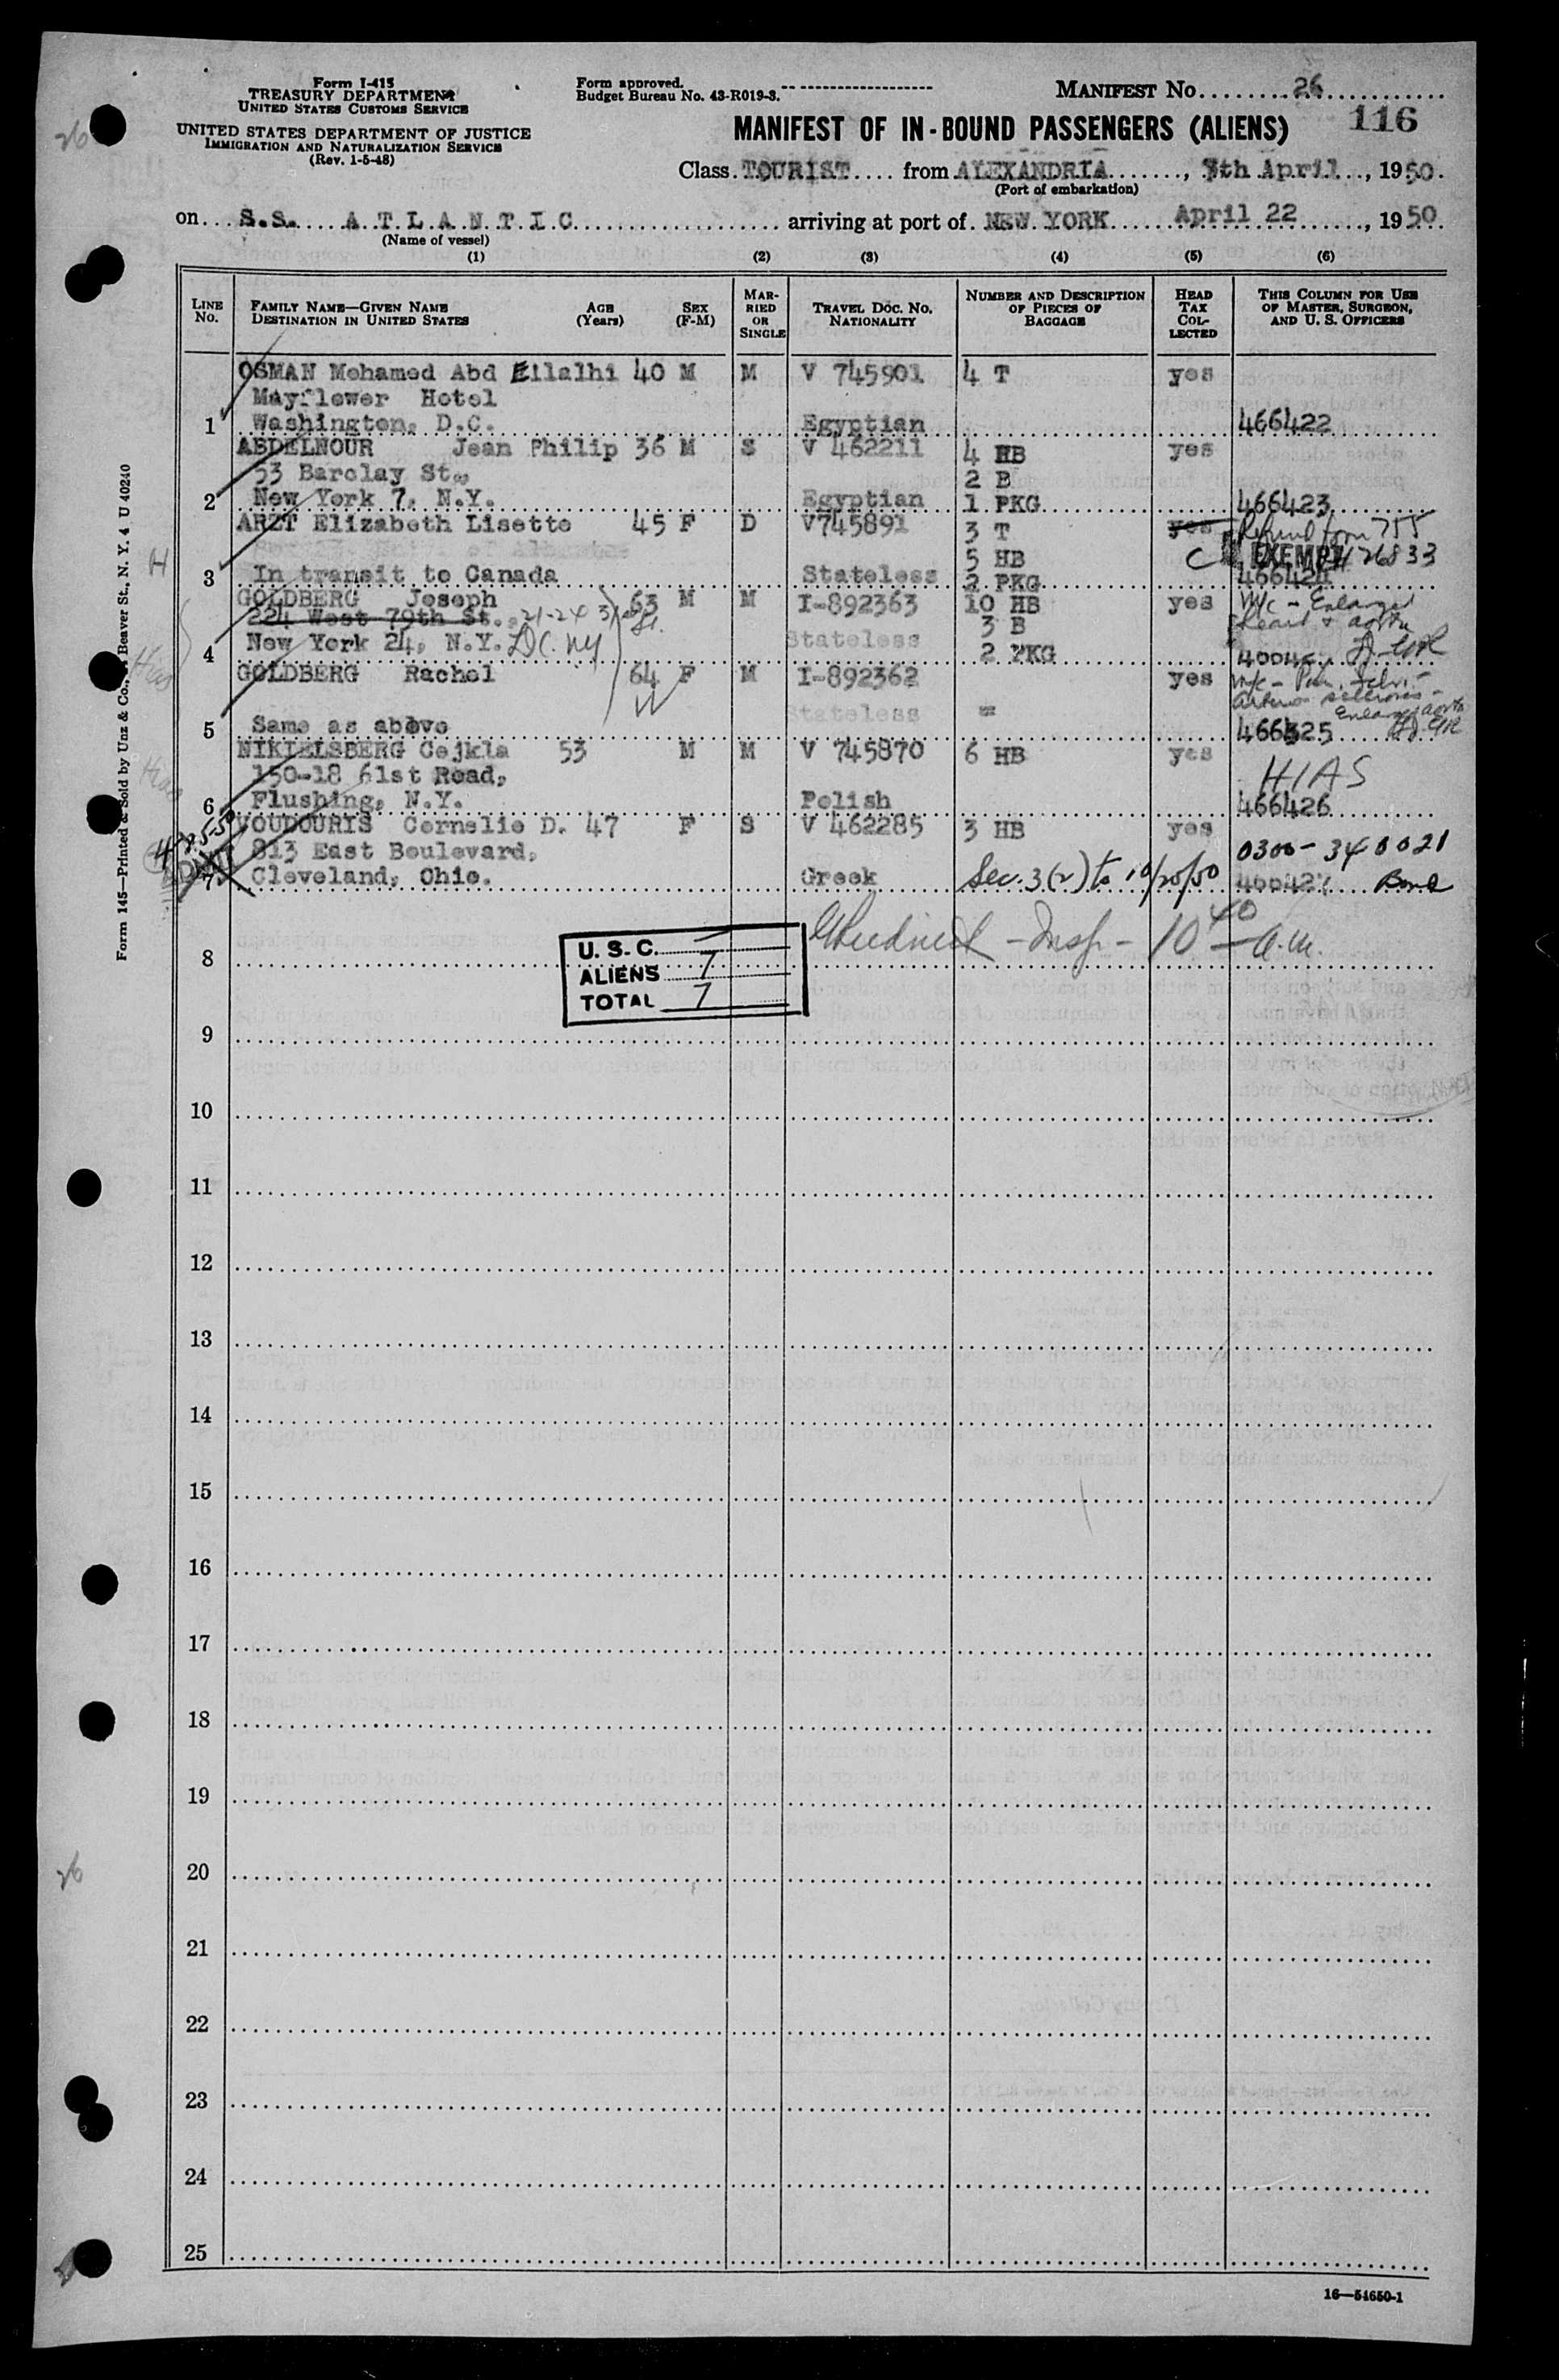 Form I-415
TREASURY DEPARTMENT
UNITED STATES CUSTOMS SERVICE
UNITED STATES DEPARTMENT OF JUSTICE
IMMIGRATION AND NATURALIZATION SERVICE
(Rev. 1-5-48)
Form approved.
Budget Bureau No. 43-R019-3.
MANIFEST No. 26
116
MANIFEST OF IN-BOUND PASSENGERS (ALIENS)
Class TOURIST from ALEXANDRIA, 7th April, 1950.
(Port of embarkation)
on S.S. ATLANTIC arriving at port of NEW YORK April 22, 1950
(Name of vessel)
(1) (2) (3) (4) (5) (6)
LINE No. FAMILY NAME—GIVEN NAME DESTINATION IN UNITED STATES AGE (Years) SEX (F-M) MARRIED OR SINGLE TRAVEL DOC. No. NATIONALITY NUMBER AND DESCRIPTION OF PIECES OF BAGGAGE HEAD TAX COLLECTED THIS COLUMN FOR USE OF MASTER, SURGEON, AND U. S. OFFICERS
OSMAN Mohamed Abd Ellalhi 40 M M V 745901 4 T yes
Mayflower Hotel
1 Washington, D.C. Egyptian 466422
ABDELNOUR Jean Philip 36 M S V 462211 4 HB yes
53 Barclay St., 2 B
2 New York 7, N.Y. Egyptian 1 PKG 466423
ARZT Elizabeth Lisette 45 F D V745891 3 T yes Refund form 755
5 HB EXEMPT
3 In transit to Canada Stateless 2 PKG 466424
GOLDBERG Joseph 63 M M I-892363 10 HB yes
224 West 79th St. 21-24 3 B Heart & aorta
4 New York 24, N.Y. Stateless 2 PKG
GOLDBERG Rachel 64 F M I-892362 yes
Stateless "
5 Same as above 466425
NIKIELSBERG Cejkla 53 M M V 745870 6 HB yes
150-18 61st Road, HIAS
6 Flushing, N.Y. Polish 466426
VOUDOURIS Cornelie D. 47 F S V 462285 3 HB yes
813 East Boulevard, 0300-340021
7 Cleveland, Ohio. Greek Sec. 3(2) to 10/20/50
Insp - 10 40 a.m.
U.S.C.
ALIENS 7
TOTAL 7
8
9
10
11
12
13
14
15
16
17
18
19
20
21
22
23
24
25
16—54650-1
Form 145—Printed & Sold by Unz & Co., Beaver St., N. Y. 4 U 40240
H
26
26